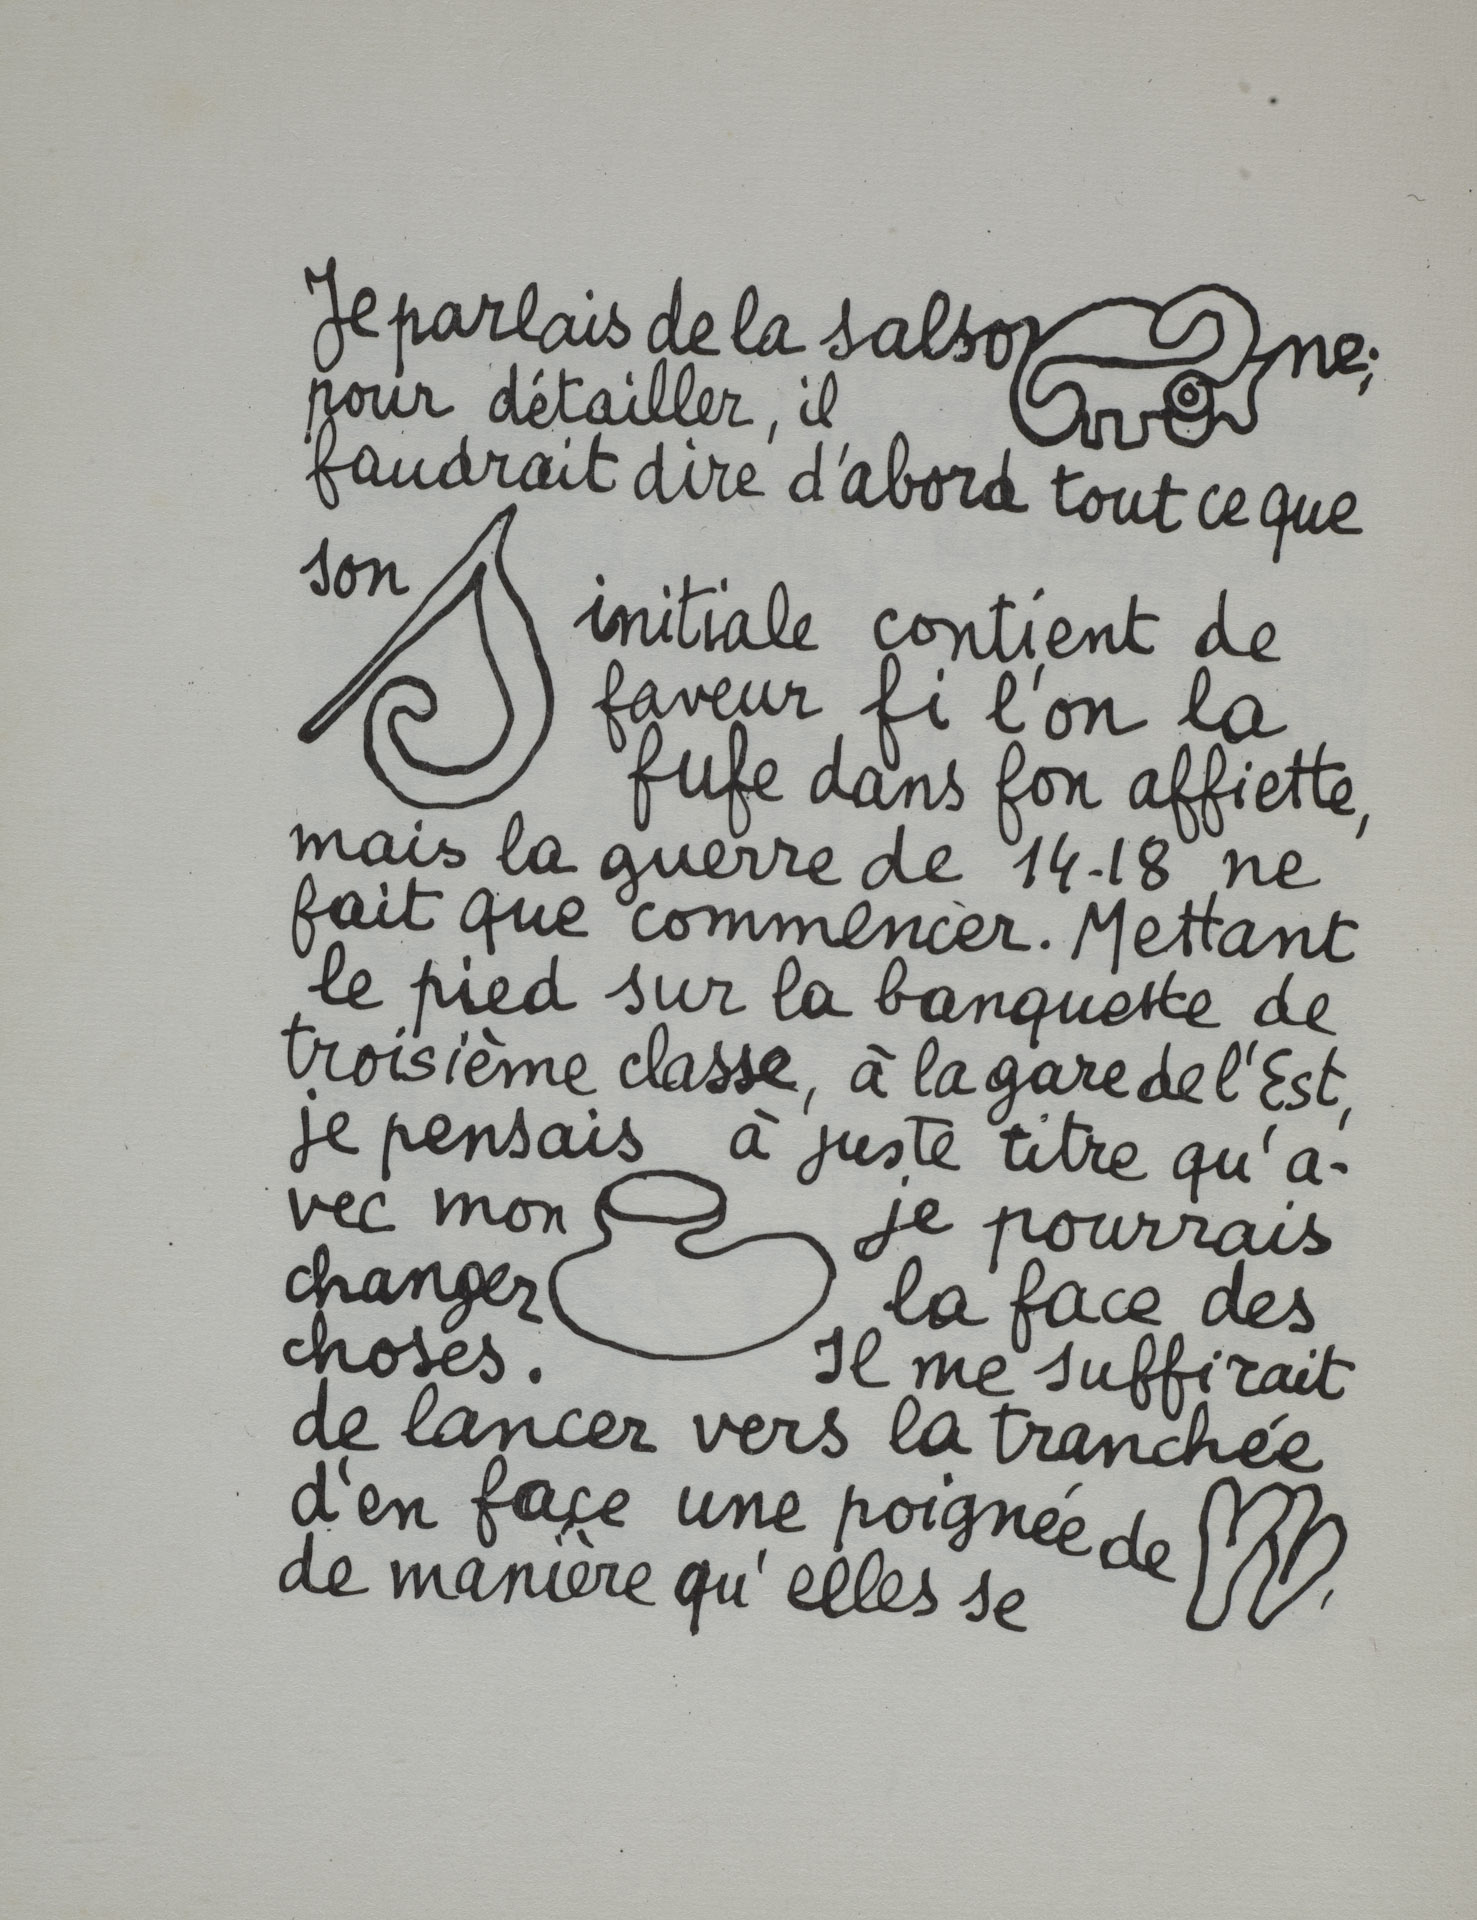 Je parlais de la salso ne;
pour détailler, il
faudrait dire d'abord tout ce que
son
initiale contient de
faveur fi l'on la
fufe dans fon affiette,
mais la guerre de 14-18 ne
fait que commencer. Mettant
le pied sur la banquette de
troisième classe, à la gare de l'Est,
je pensais à juste titre qu'a-
vec mon je pourrais
changer la face des
choses. Il me suffirait
de lancer vers la tranchée
d'en face une poignée de ,
de manière qu'elles se